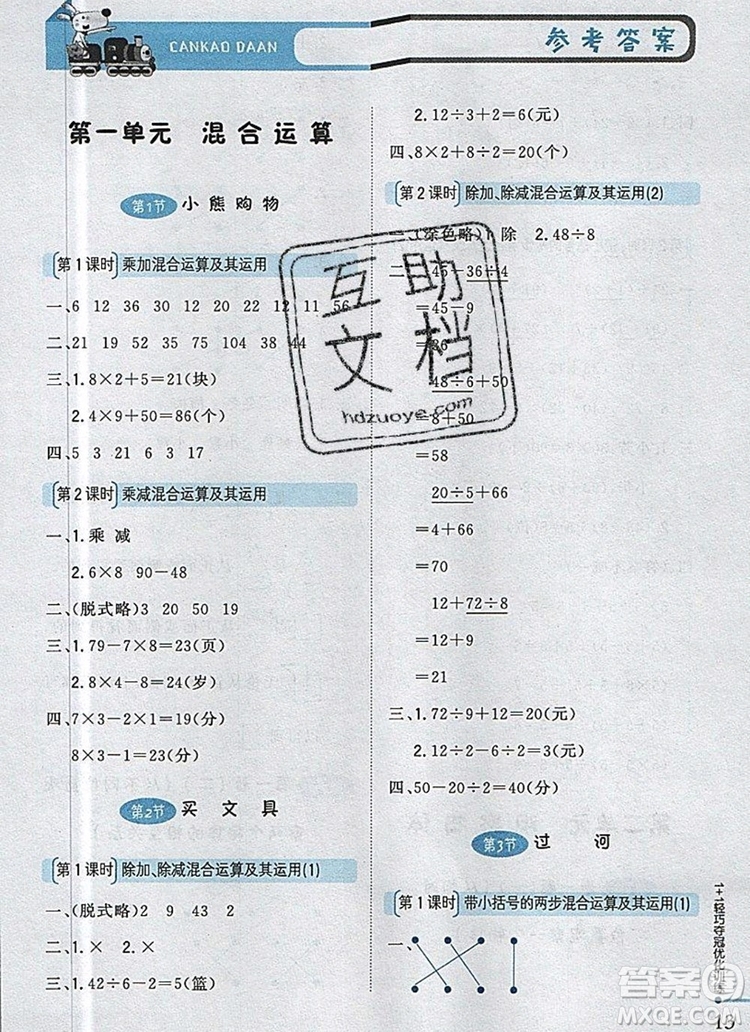 CANKAO DAAN
参考答案
第一单元 混合运算
第1节 小熊购物
第1课时 乘加混合运算及其运用
一、6 12 36 30 12 20 22 12 11 56
二、21 29 52 35 75 104 38 44
三、1.8×2+5=21(块)
2.4×9+50=86(个)
四、5 3 21 6 3 17
第2课时 乘减混合运算及其运用
一、1.乘 减
2.6×8 90-48
二、(脱式略)3 20 50 19
三、1.79-7×8=23(页)
2.8×4-8=24(岁)
四、7×3-2×1=19(分)
8×3-1=23(分)
第2节 买文具
第1课时 除加、除减混合运算及其运用(1)
一、(脱式略)2 9 43 2
二、1.× 2.×
三、1.42÷6-2=5(篮)
2.12÷3+2=6(元)
四、8×2+8÷2=20(个)
第2课时 除加、除减混合运算及其运用(2)
一、(涂色略)1.除 2.48÷8
二、45-36÷4
=45-9
=36
48÷6+50
=8+50
=58
20÷5+66
=4+66
=70
12+72÷8
=12+9
=21
三、1.72÷9+12=20(元)
2.12÷2-6÷2=3(元)
四、50-20÷2=40(分)
第3节 过河
第1课时 带小括号的两步混合运算及其运用(1)
一、
1+1轻巧夺冠优化训练
互助文档
hdzuoye.com
答案圈
MXQE.COM